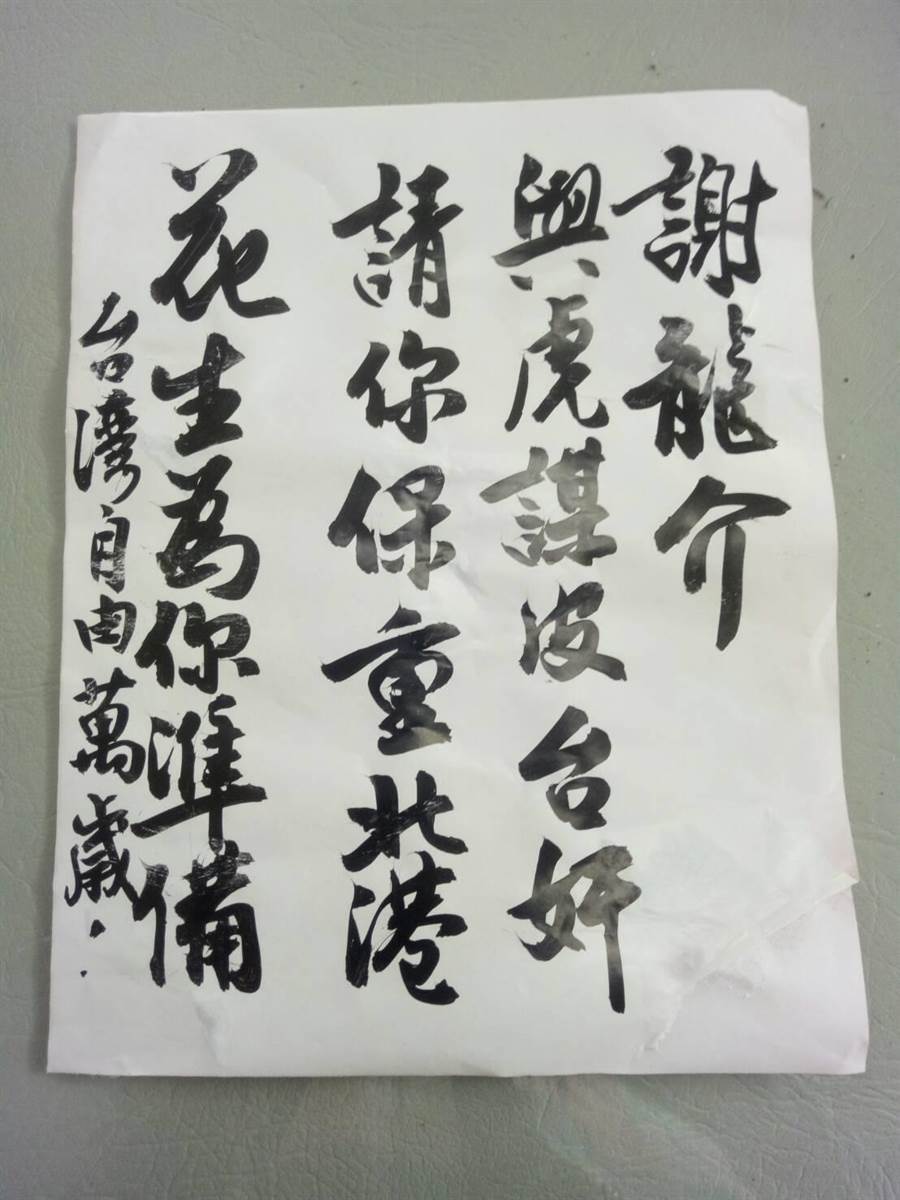 謝龍介
與虎謀皮台奸
請你保重北港
花生為你準備
台灣自由萬歲..